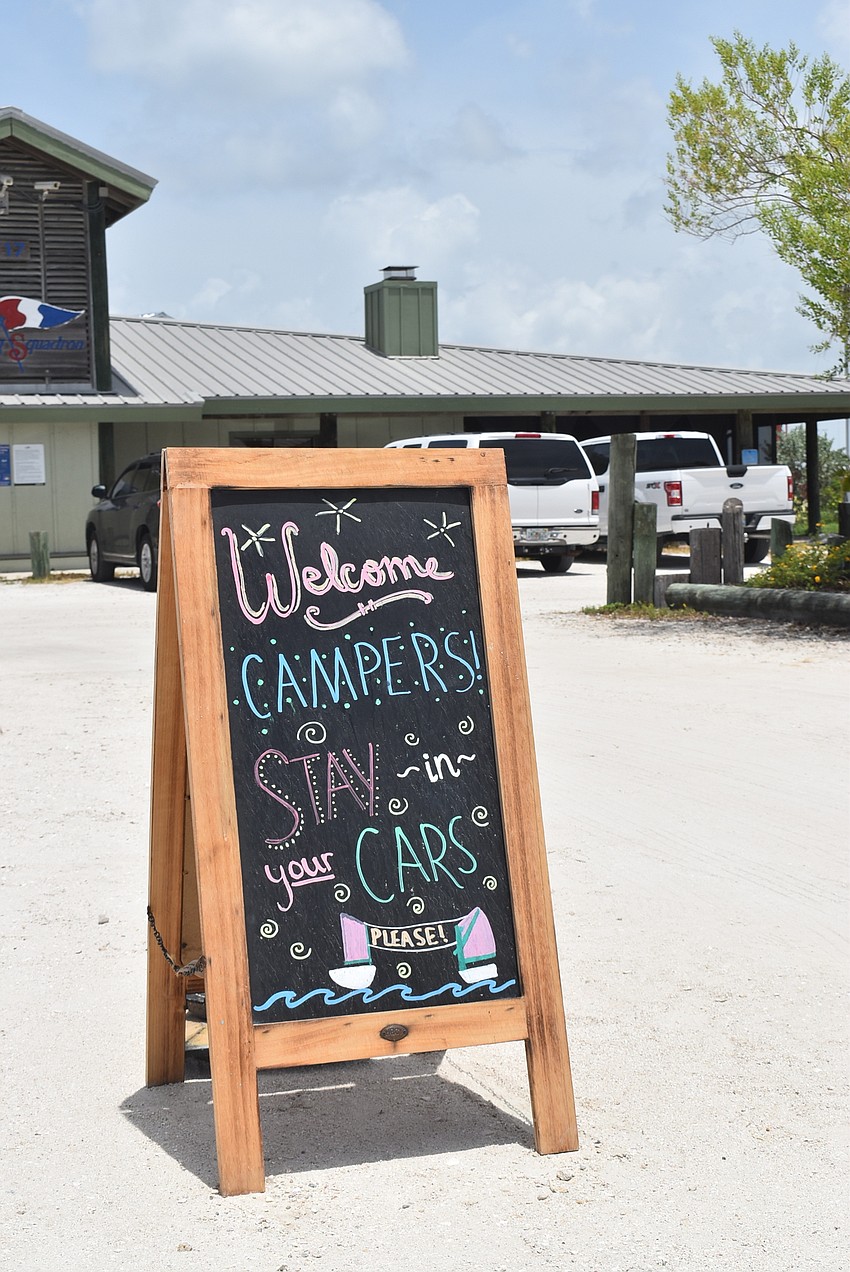 17
Squadron
Welcome
CAMPERS!
STAY ~in~
your CARS
PLEASE!